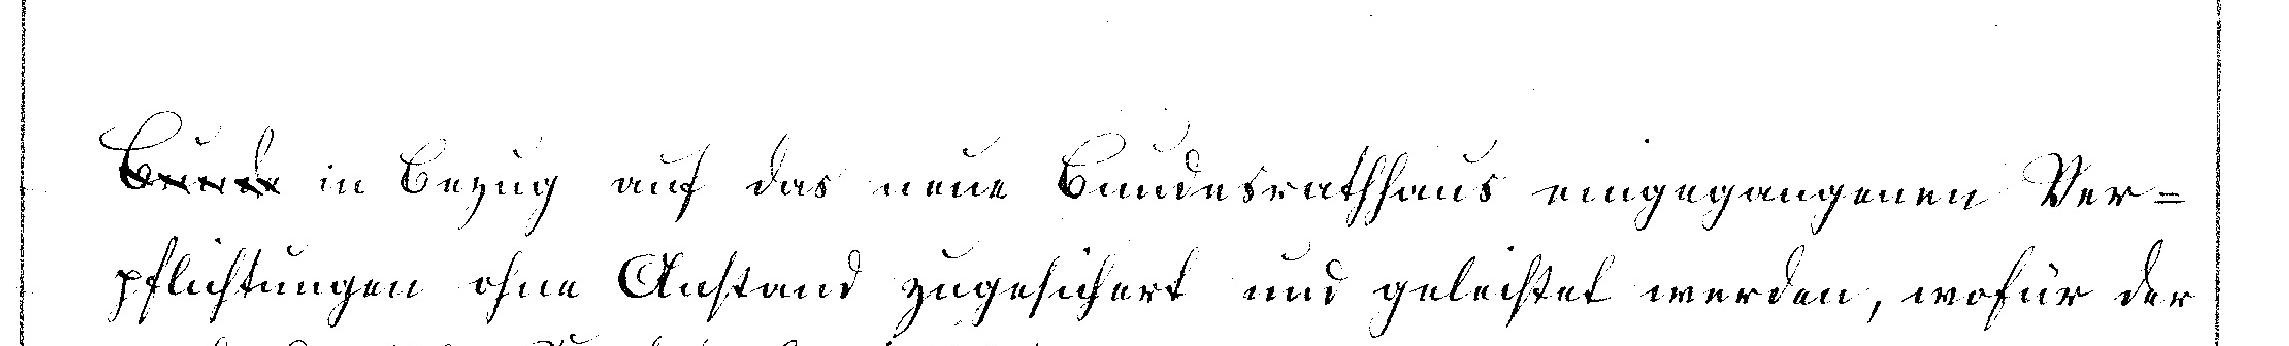 Bunde in Bezug auf das neue Bundesrathhaus eingegangenen Ver=
pflichtungen ohne Anstand zugesichert und geleistet werden, wofür der